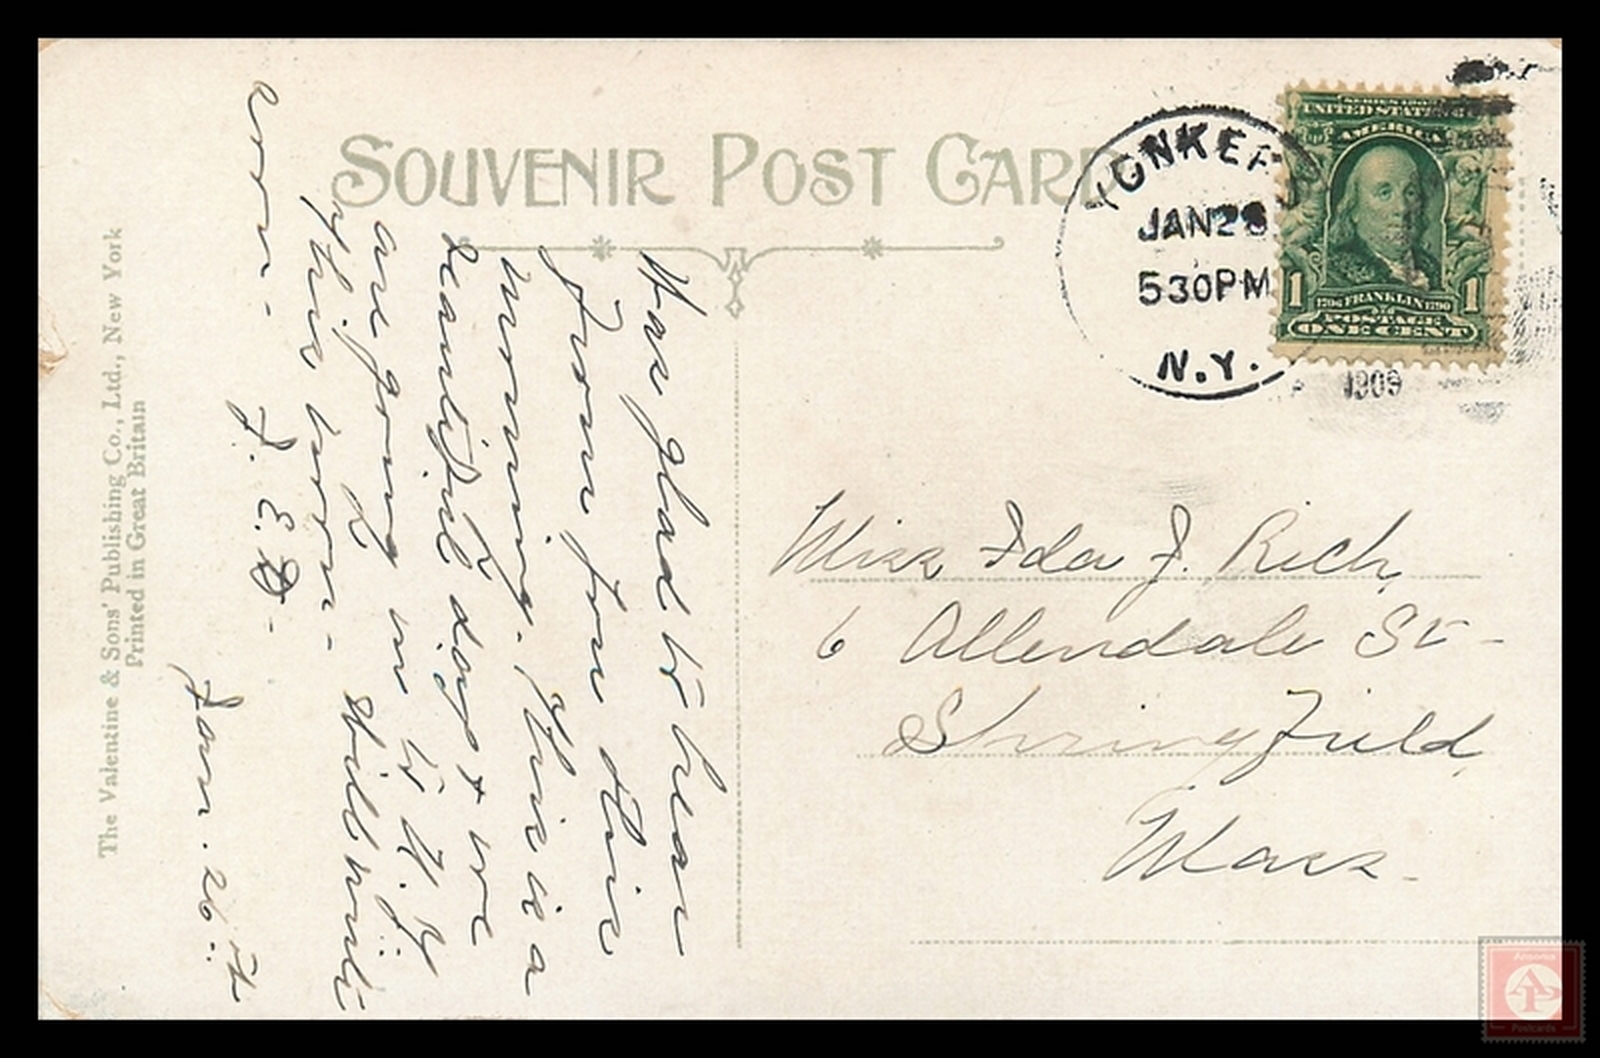 SOUVENIR POST CARD
YONKERS
JAN 28
5 30 PM
N.Y.
1909
SERIES 1902
UNITED STATES OF
AMERICA
1 1706 FRANKLIN 1790 1
POSTAGE
ONE CENT
Miss Ida J. Rich,
6 Allendale St -
Springfield,
Mass -
Was glad to hear
from you this
morning. This is a
beautiful day & we
are going in to N.Y.
this noon - Will write
soon - J. E. B -
Jan. 26th
The Valentine & Sons' Publishing Co., Ltd., New York
Printed in Great Britain
Ansonia
AP
Postcards